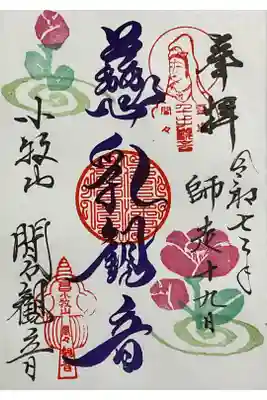 奉拝
令和七年
師走十九日
慈乳観音
小牧山
間々観音